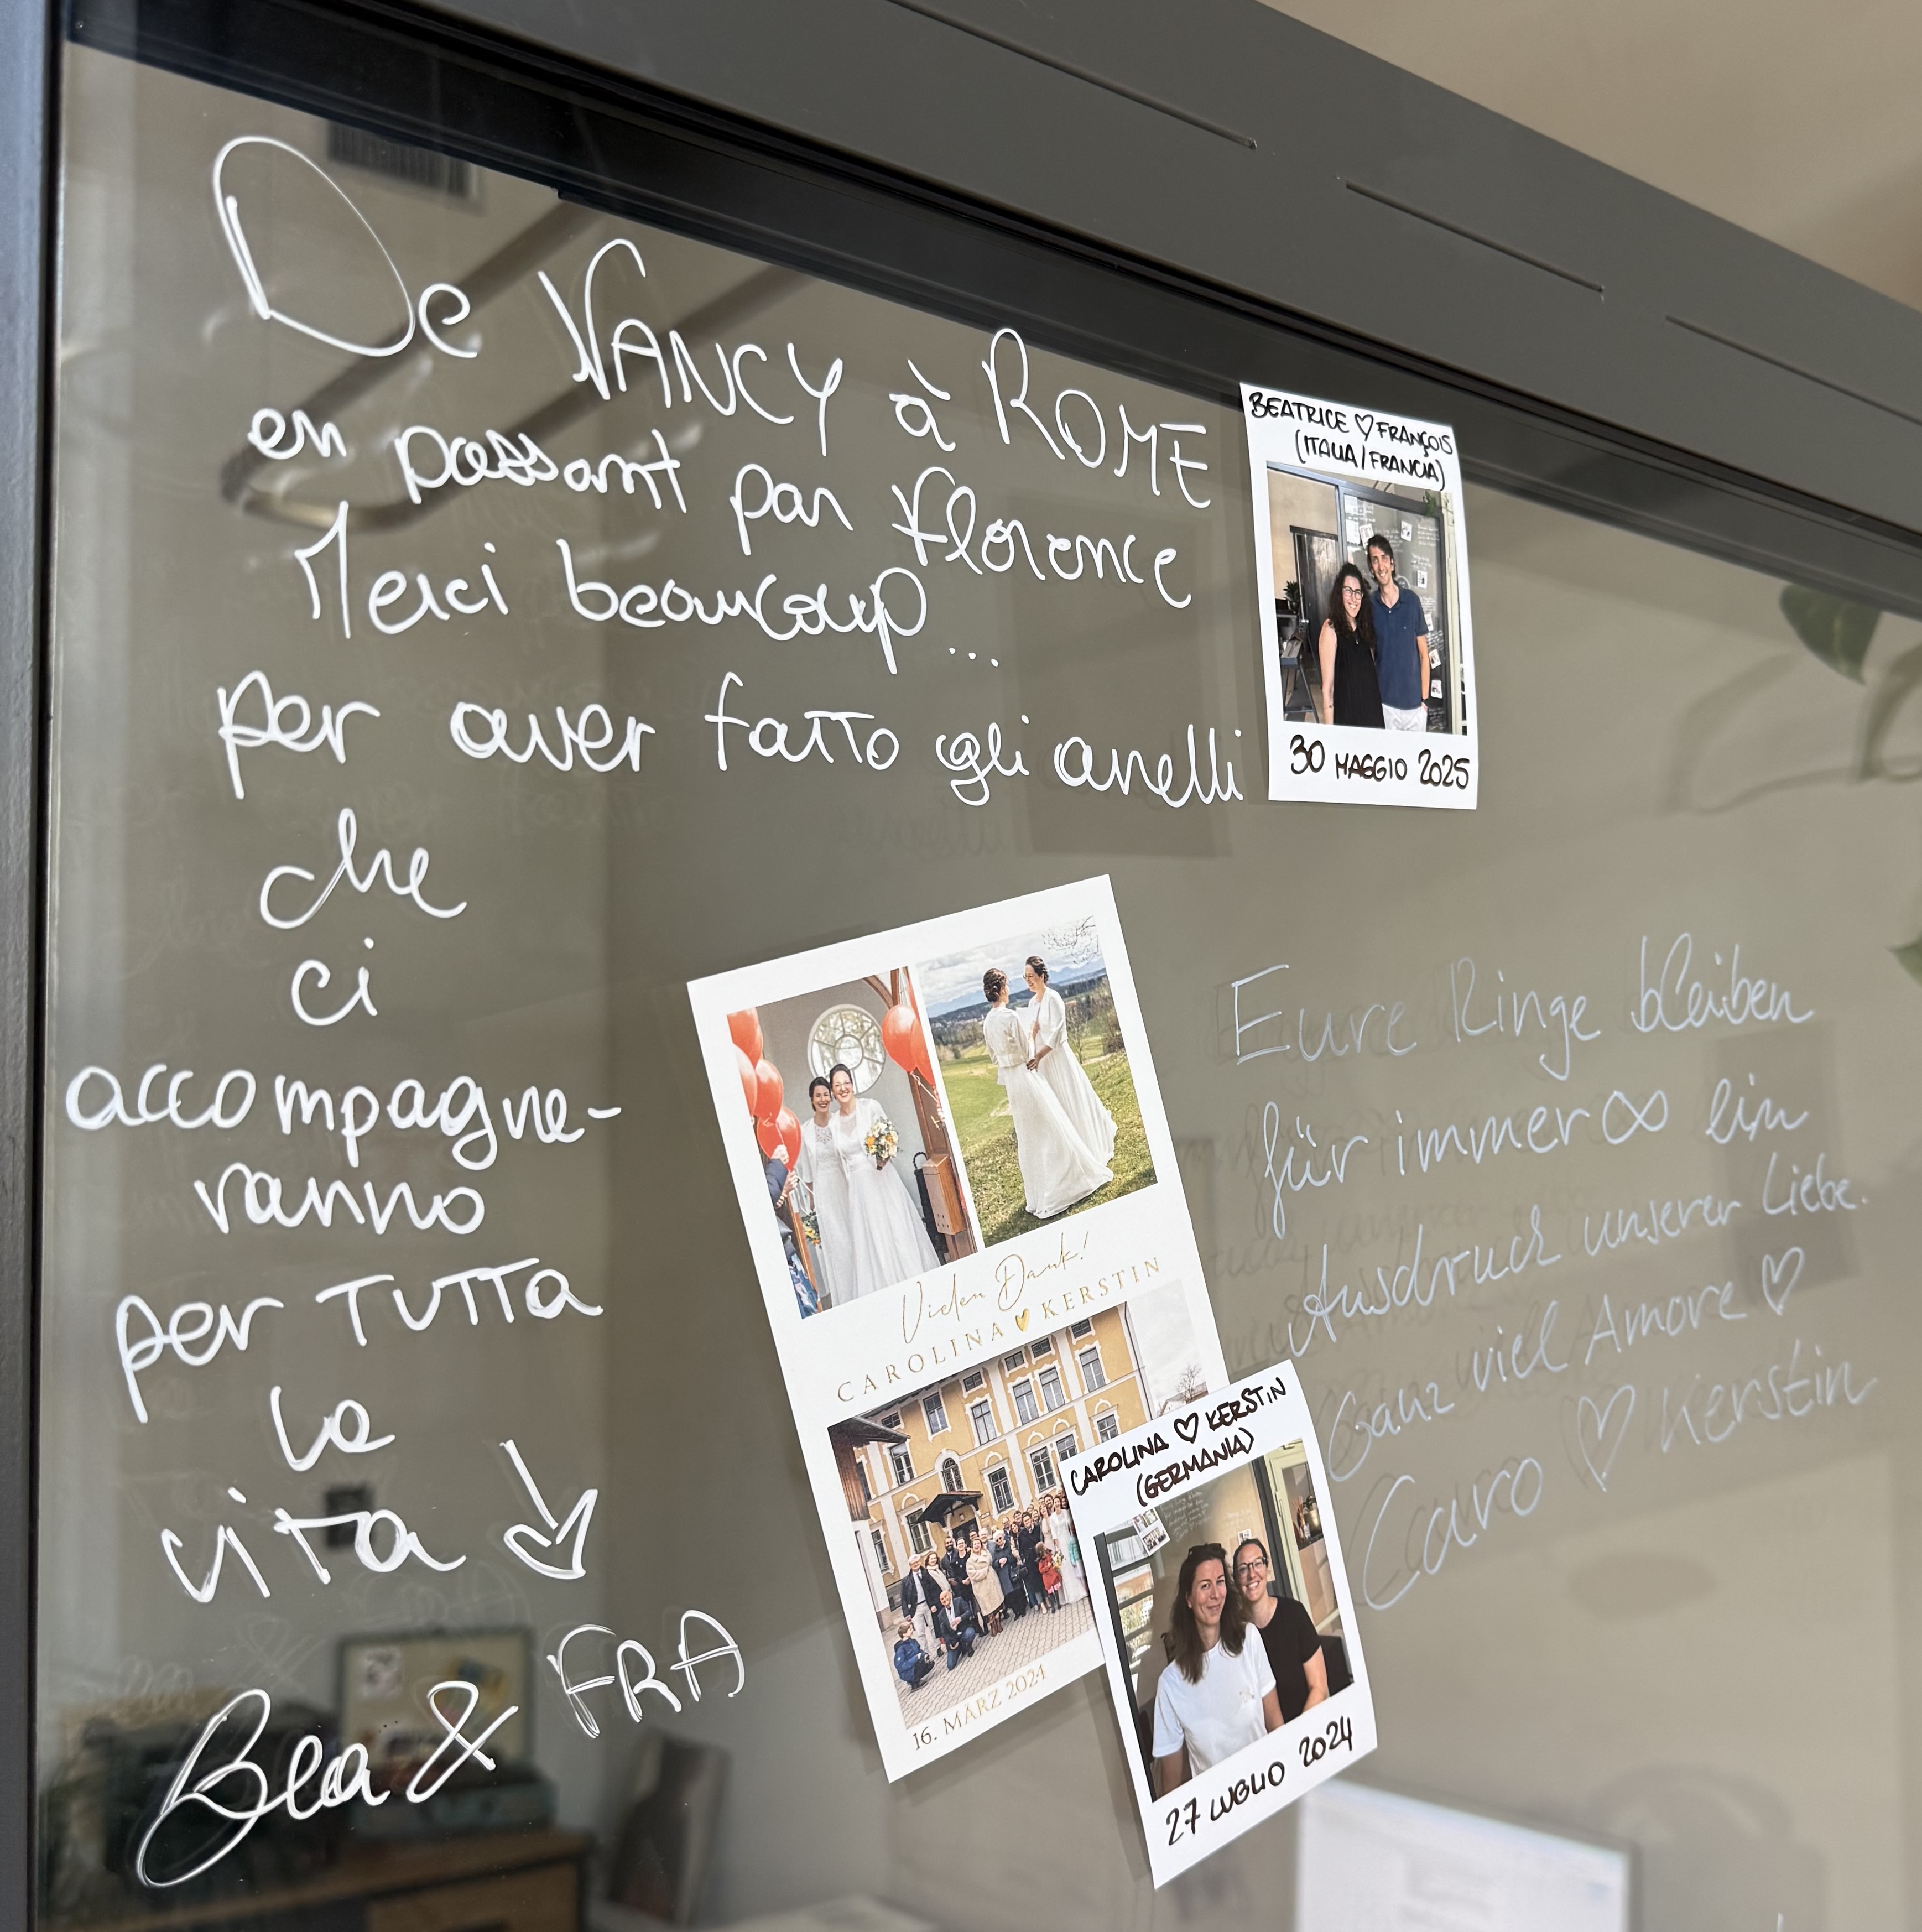 De NANCY à ROME
en passant par Florence
Merci beaucoup...
per aver fatto gli anelli
che
ci
accompagne-
ranno
per TUTTA
la
vita
Bea & FRA
BEATRICE ♡ FRANÇOIS
(ITALIA/FRANCIA)
30 MAGGIO 2025
Vielen Dank!
CAROLINA ♥ KERSTIN
16. MÄRZ 2024
CAROLINA ♡ KERSTIN
(GERMANIA)
27 LUGLIO 2024
Eure Ringe bleiben
für immer ∞ ein
Ausdruck unserer Liebe.
Ganz viel Amore ♡
Caro ♡ Kerstin